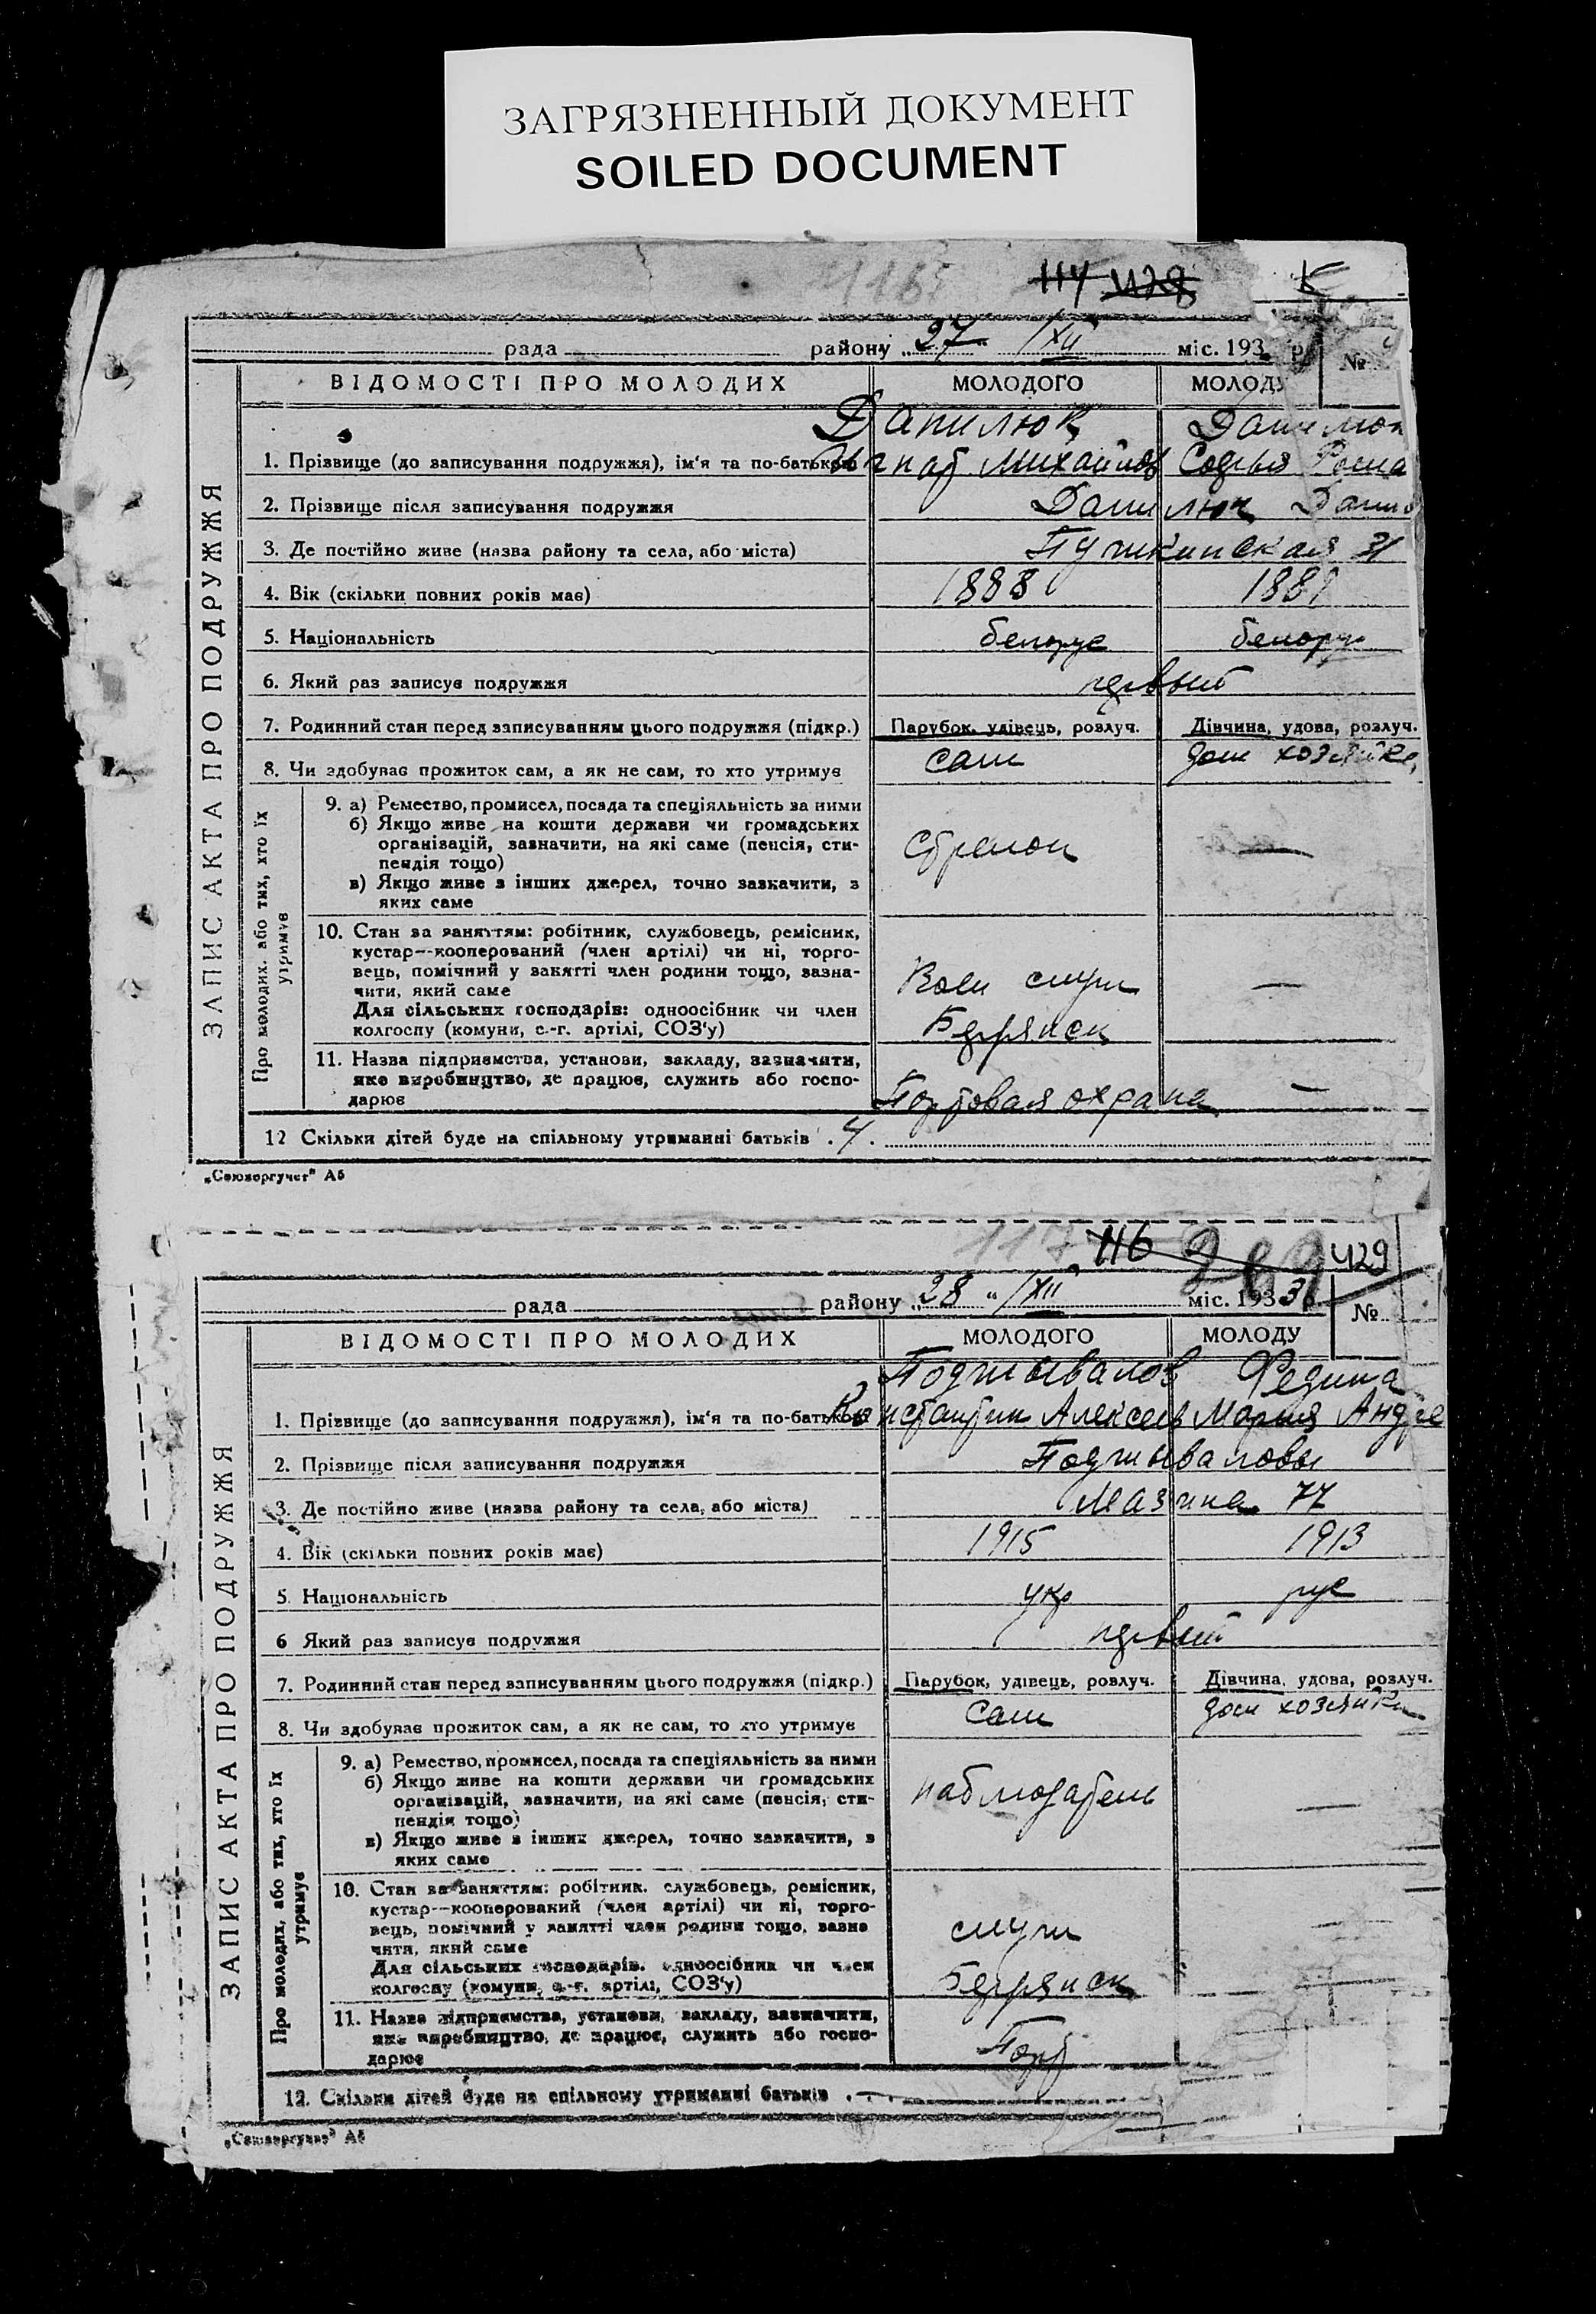 ЗАГРЯЗНЕННЫЙ ДОКУМЕНТ
SOILED DOCUMENT
114 428 К
рада району „27“ /XII міс. 193 р №
ВІДОМОСТІ ПРО МОЛОДИХ МОЛОДОГО МОЛОДУ
Данилюк Данилюк
1. Прізвище (до записування подружжя), ім'я та по-батькові Игнат Михайлов Софья Рома
2. Прізвище після записування подружжя Данилюк Данил
3. Де постійно живе (назва району та села, або міста) Пушкинская 31
4. Вік (скільки повних років має) 1888 1881
5. Національність белорус белорус
6. Який раз записує подружжя первый
7. Родинний стан перед записуванням цього подружжя (підкр.) Парубок, удівець, розлуч. Дівчина, удова, розлуч.
8. Чи здобував прожиток сам, а як не сам, то хто утримує сам дом хозяйка
ЗАПИС АКТА ПРО ПОДРУЖЖЯ
Про молодих, або тих, хто їх утримує
9. а) Ремество, промисел, посада та спеціяльність за ними
б) Якщо живе на кошти держави чи громадських
організацій, зазначити, на які саме (пенсія, сти-
пендія тощо)
в) Якщо живе з інших джерел, точно зазначити, з
яких саме
стрелок —
10. Стан за заняттям: робітник, службовець, ремісник,
кустар--кооперований (член артілі) чи ні, торго-
вець, помічний у занятті член родини тощо, зазна-
чити, який саме
Для сільських господарів: одноосібник чи член
колгоспу (комуни, с.-г. артілі, СОЗ'у)
служ —
Бердянск
11. Назва підприємства, установи, закладу, зазначити,
яке виробництво, де працює, служить або госпо-
дарює
Портовая охрана —
12 Скільки дітей буде на спільному утриманні батьків 4
„Союзоргучет" А5
117 116 429
рада району „28“ /XII міс. 1933 р №
ВІДОМОСТІ ПРО МОЛОДИХ МОЛОДОГО МОЛОДУ
Подшывалов Федина
1. Прізвище (до записування подружжя), ім'я та по-батькові Константин Алексеев Мария Андре
2. Прізвище після записування подружжя Подшываловы
3. Де постійно живе (назва району та села, або міста) Мазина 77
4. Вік (скільки повних років має) 1915 1913
5. Національність укр рус
6 Який раз записує подружжя первый
7. Родинний стан перед записуванням цього подружжя (підкр.) Парубок, удівець, розлуч. Дівчина, удова, розлуч.
8. Чи здобував прожиток сам, а як не сам, то хто утримує Сам дом хозяйка
ЗАПИС АКТА ПРО ПОДРУЖЖЯ
Про молодих, або тих, хто їх утримує
9. а) Ремество, промисел, посада та спеціяльність за ними
б) Якщо живе на кошти держави чи громадських
організацій, зазначити, на які саме (пенсія, сти-
пендія тощо)
в) Якщо живе з інших джерел, точно зазначити, з
яких саме
наблюдатель —
10. Стан за заняттям: робітник, службовець, ремісник,
кустар--кооперований (член артілі) чи ні, торго-
вець, помічний у занятті член родини тощо, зазна
чити, який саме
Для сільських господарів: одноосібник чи член
колгоспу (комуни, с.-г. артілі, СОЗ'у)
служ —
Бердянск
11. Назва підприємства, установи, закладу, зазначити,
яке виробництво, де працює, служить або госпо-
дарює
Порт
12. Скільки дітей буде на спільному утриманні батьків —
„Союзоргучет" А5